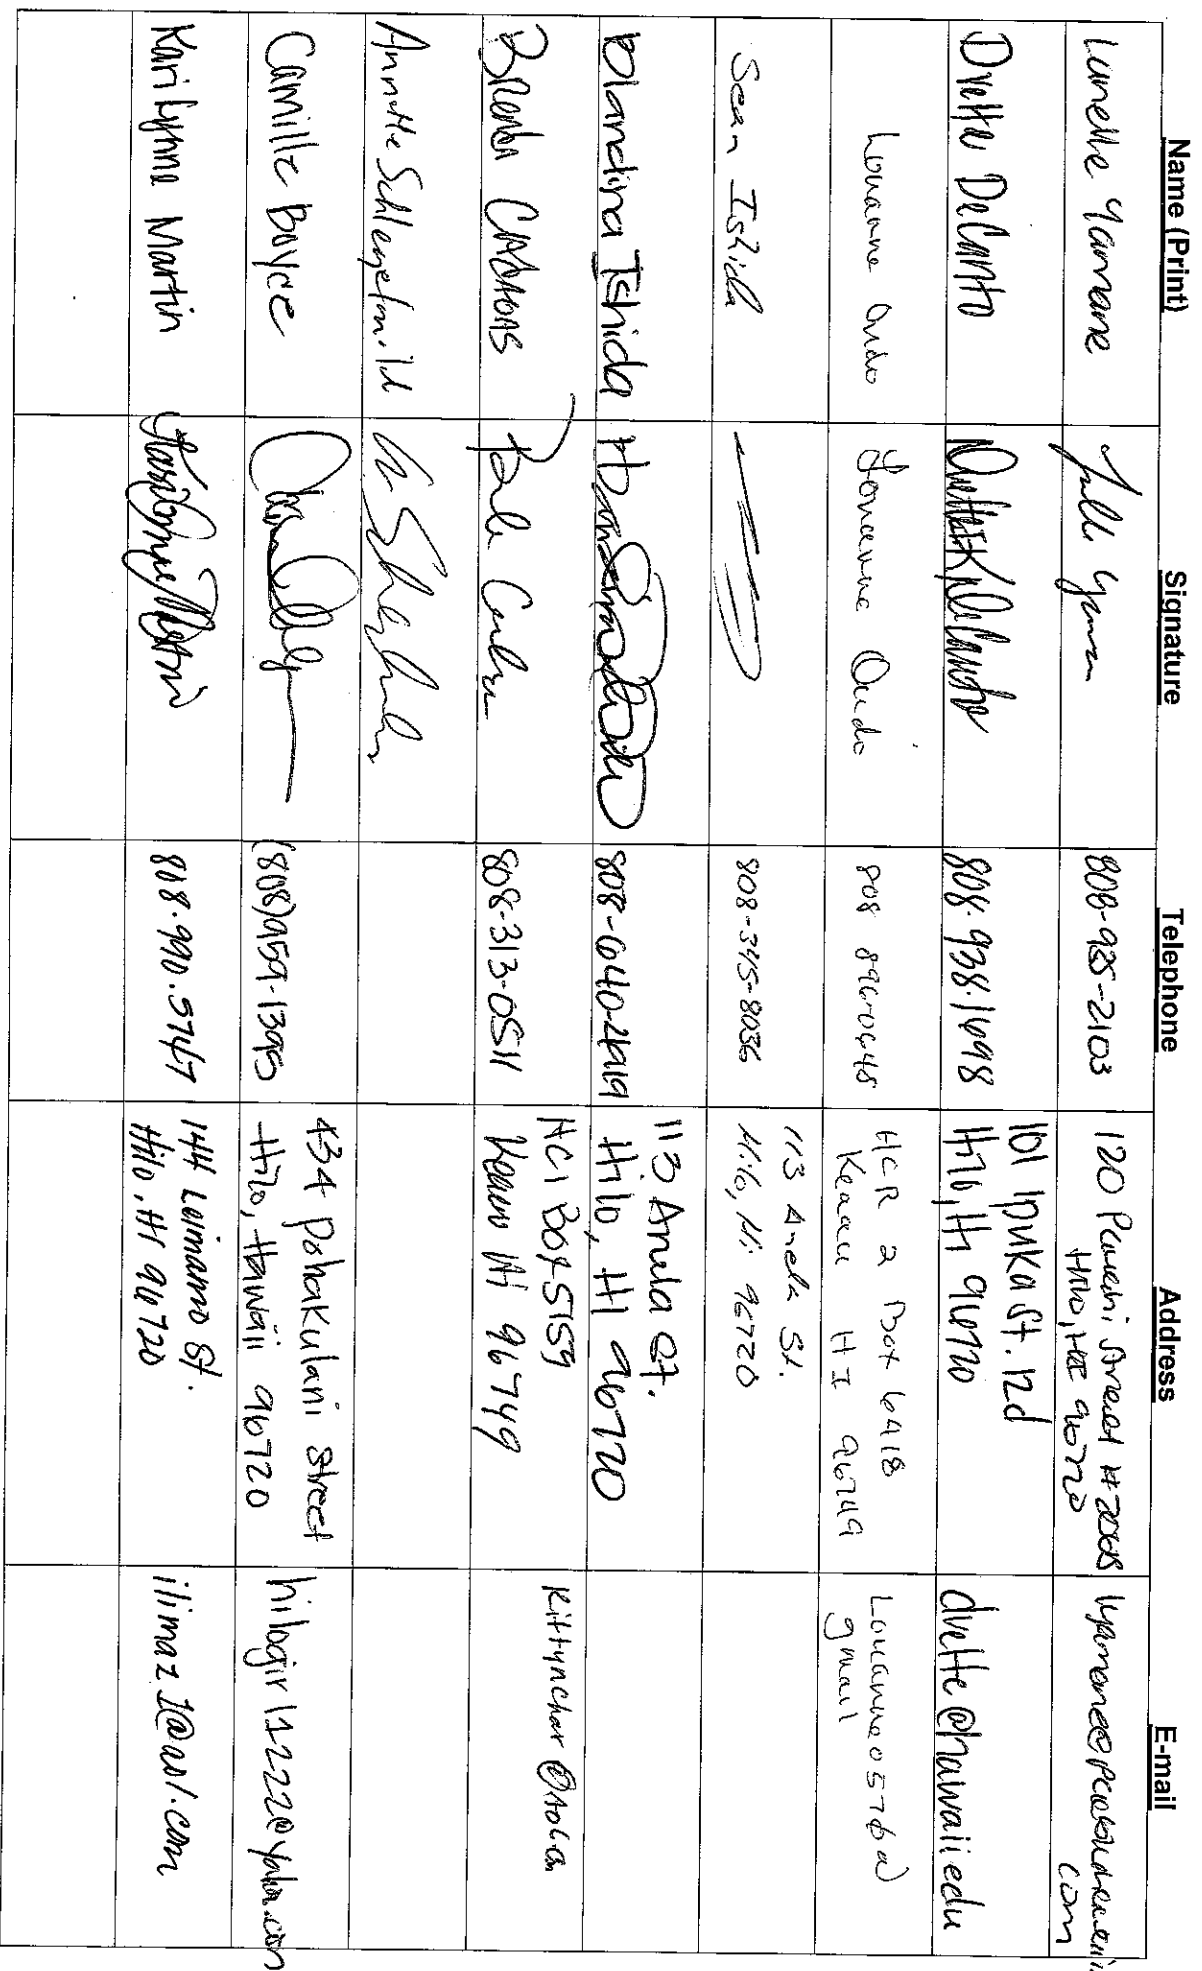 Name (Print) Signature Telephone Address E-mail
Lunelle Yamane 808-935-2103 120 Pauahi Street #206B
Hilo, HI 96720
com
Dvette DeCanto 808.938.1698 101 Ipuka St. 12d
Hilo, HI 96720 dvette@hawaii.edu
Louanne Oudo Louanne Oudo 808 896-0648 HCR 2 Box 6418
Keaau HI 96749 Louanne0576@
gmail
Sean Ishida 808-345-8036 113 Anela St.
Hilo, Hi 96720
blandina Ishida 808-640-4919 113 Anela St.
Hilo, HI 96720
Brenda CABABAS 808-313-0511 HC1 Box 5159
Keaau HI 96749 Kittynchar@
Annette
Camille Boyce (808)959-1395 434 Pohakulani street
Hilo, Hawaii 96720 hilogirl1222@yahoo.com
Karilynne Martin 808.990.5767 144 St.
Hilo, HI 96720 ilimaz1@aol.com